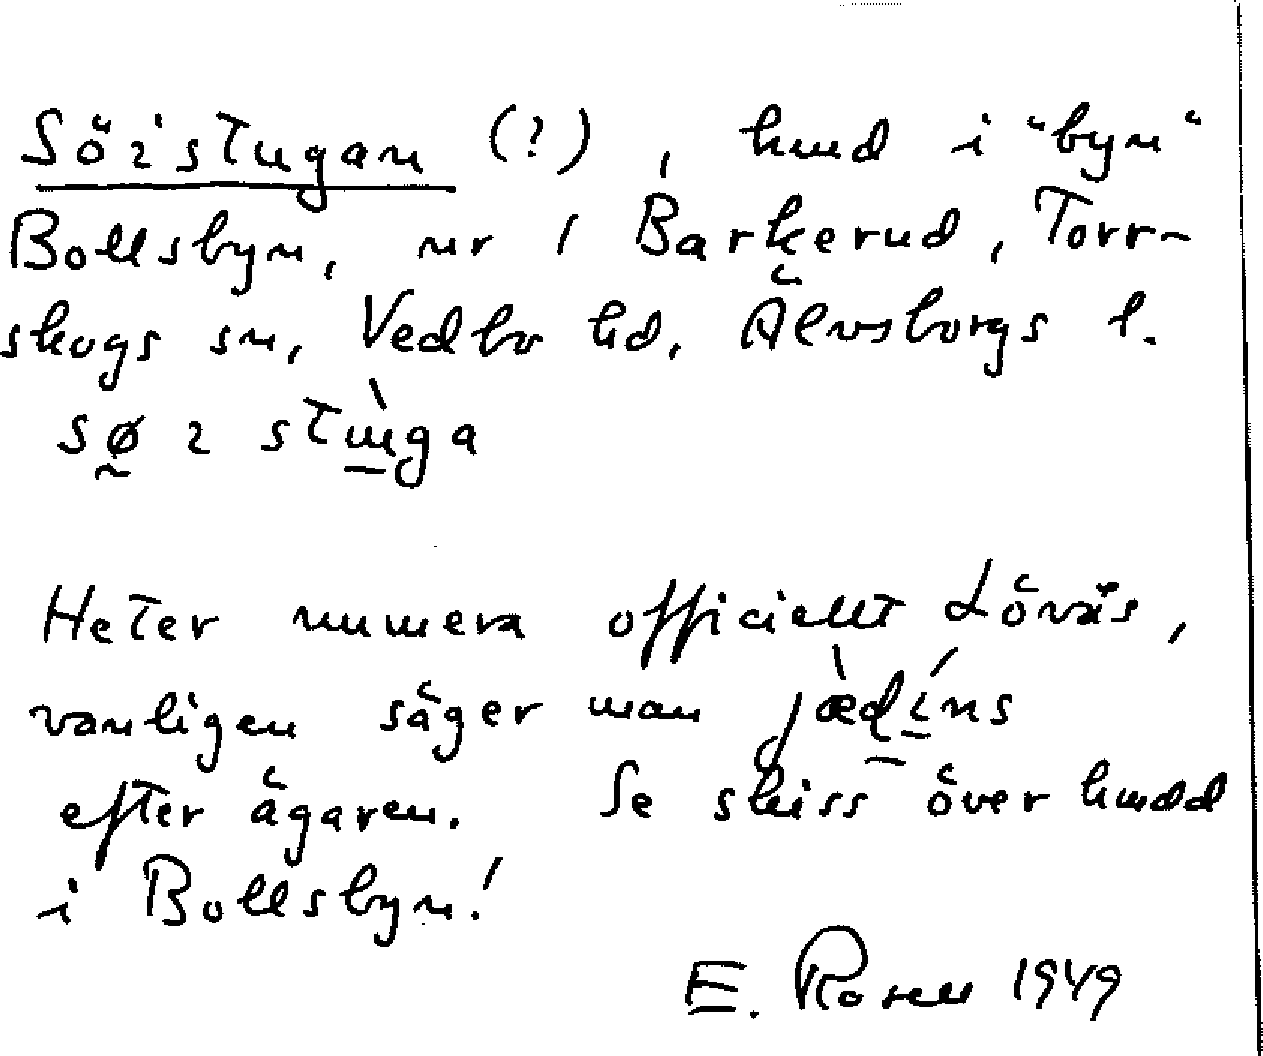 Sör'stugan (?), hmd i "byn"
Bollsbyn, nr 1 Barkerud, Torr-
skogs sn, Vedbo hd, Älvsborgs l.
Heter numera officiellt Lövås,
vanligen säger man jædíns
efter ägaren. Se skiss över hmdd
i Bollsbyn!
E. Rosell 1949